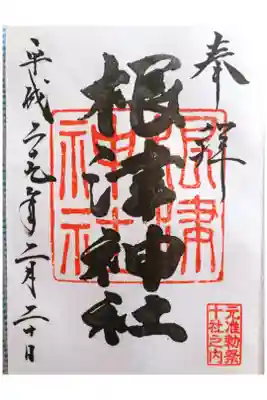 奉拝
元准勅祭
十社之内
根津神社
根津
神社
平成二九年二月二十日